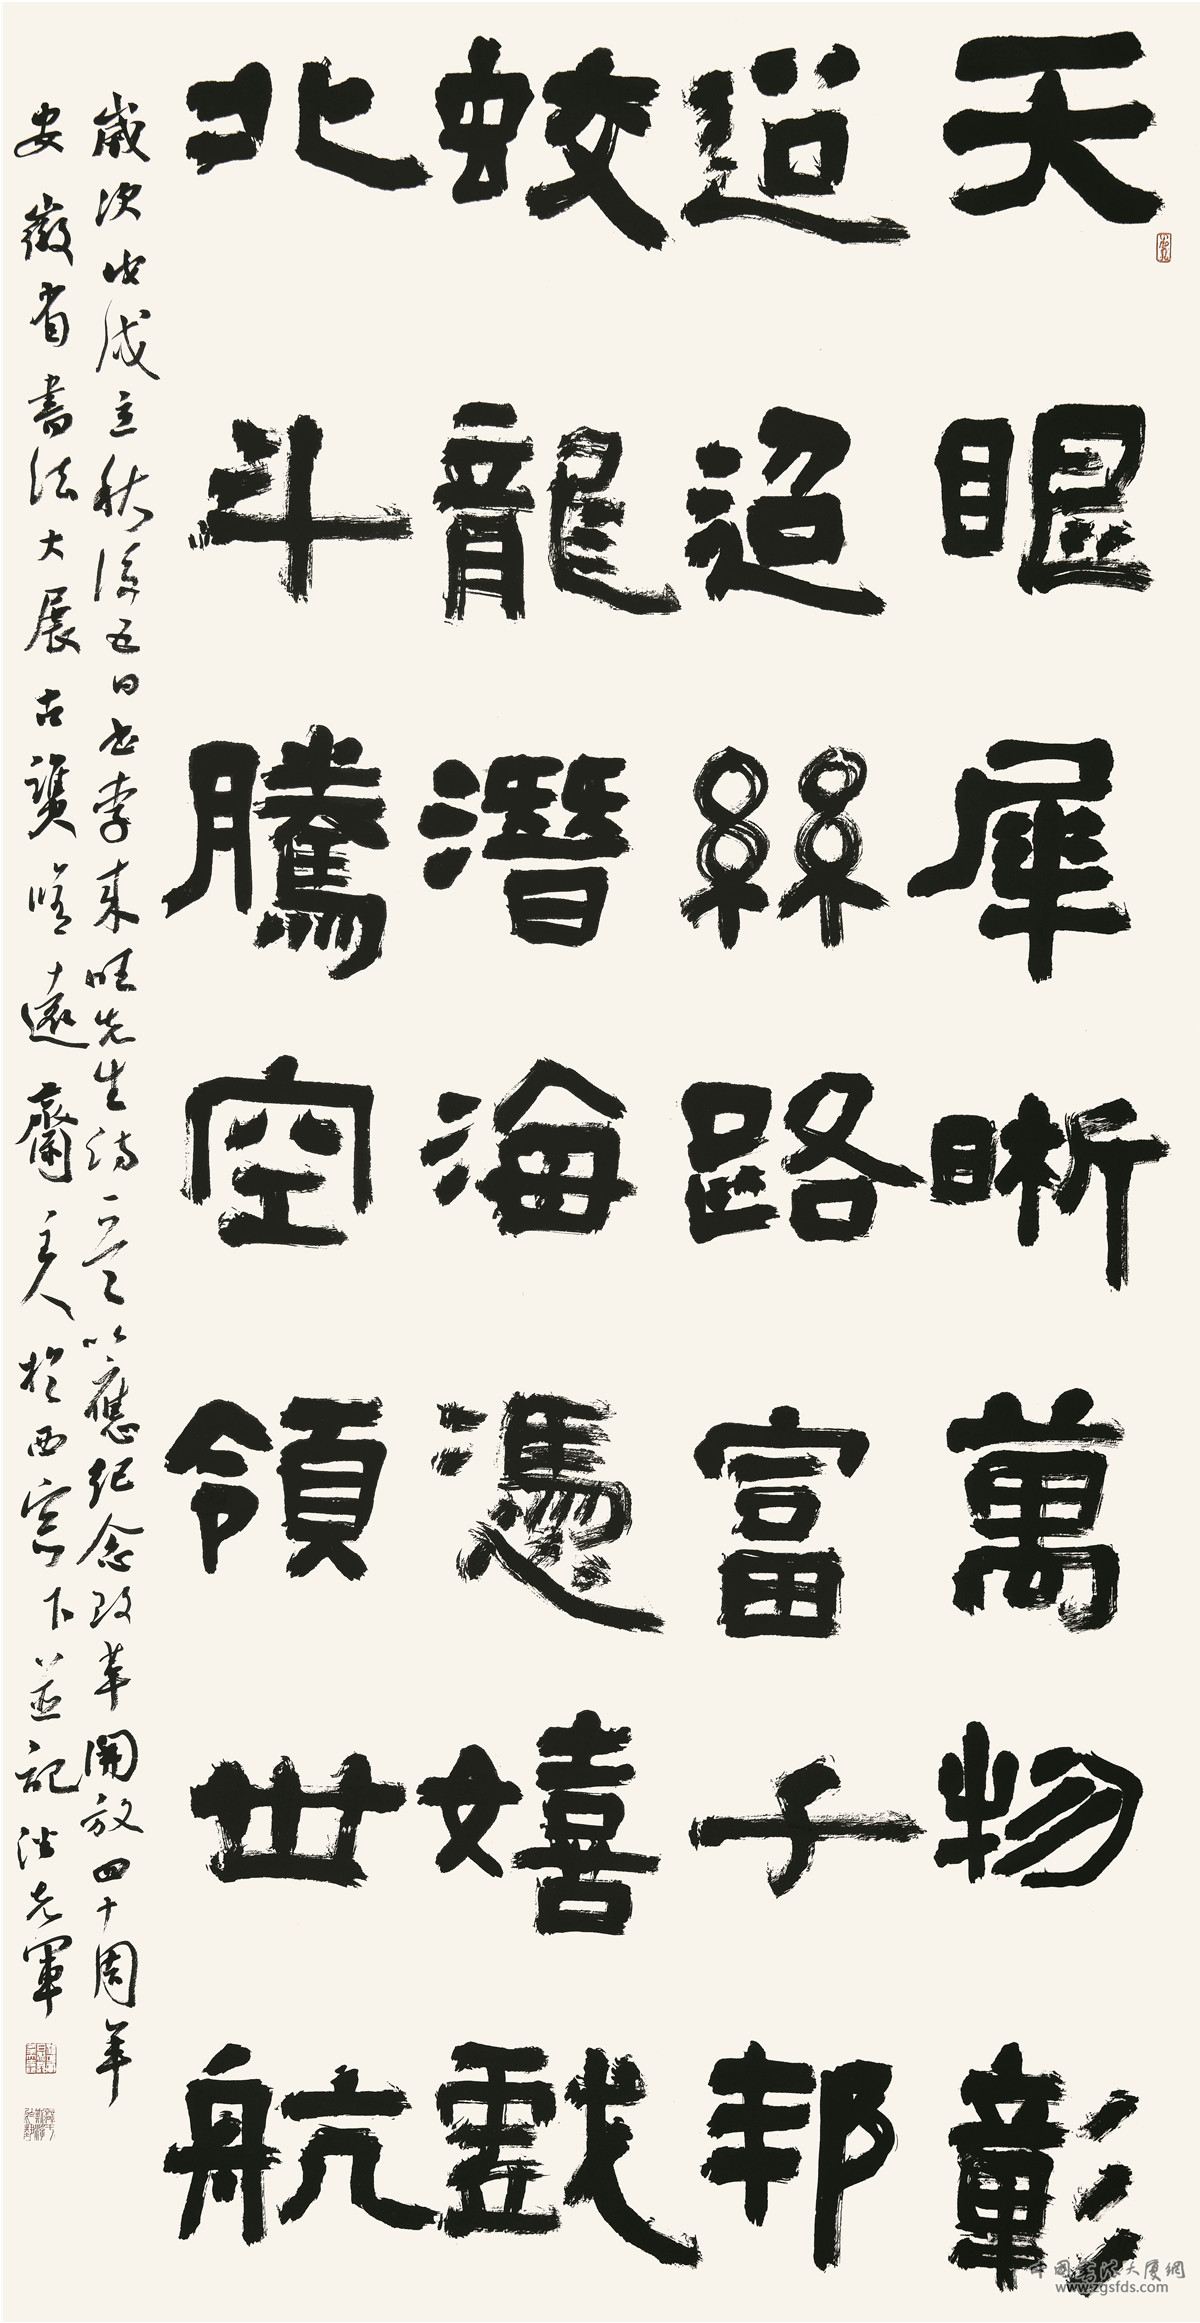 天眼犀晰萬物彰
迢迢絲路富千邦
蛟龍潛海憑嬉戲
北斗騰空領世航
歲次戊戌立秋後五日書李來旺先生詩一首以應紀念改革開放四十周年
安徽省書法大展古譙脩遠齋主人於西窗下並記法先軍
中國書法大廈網
www.zgsfds.com